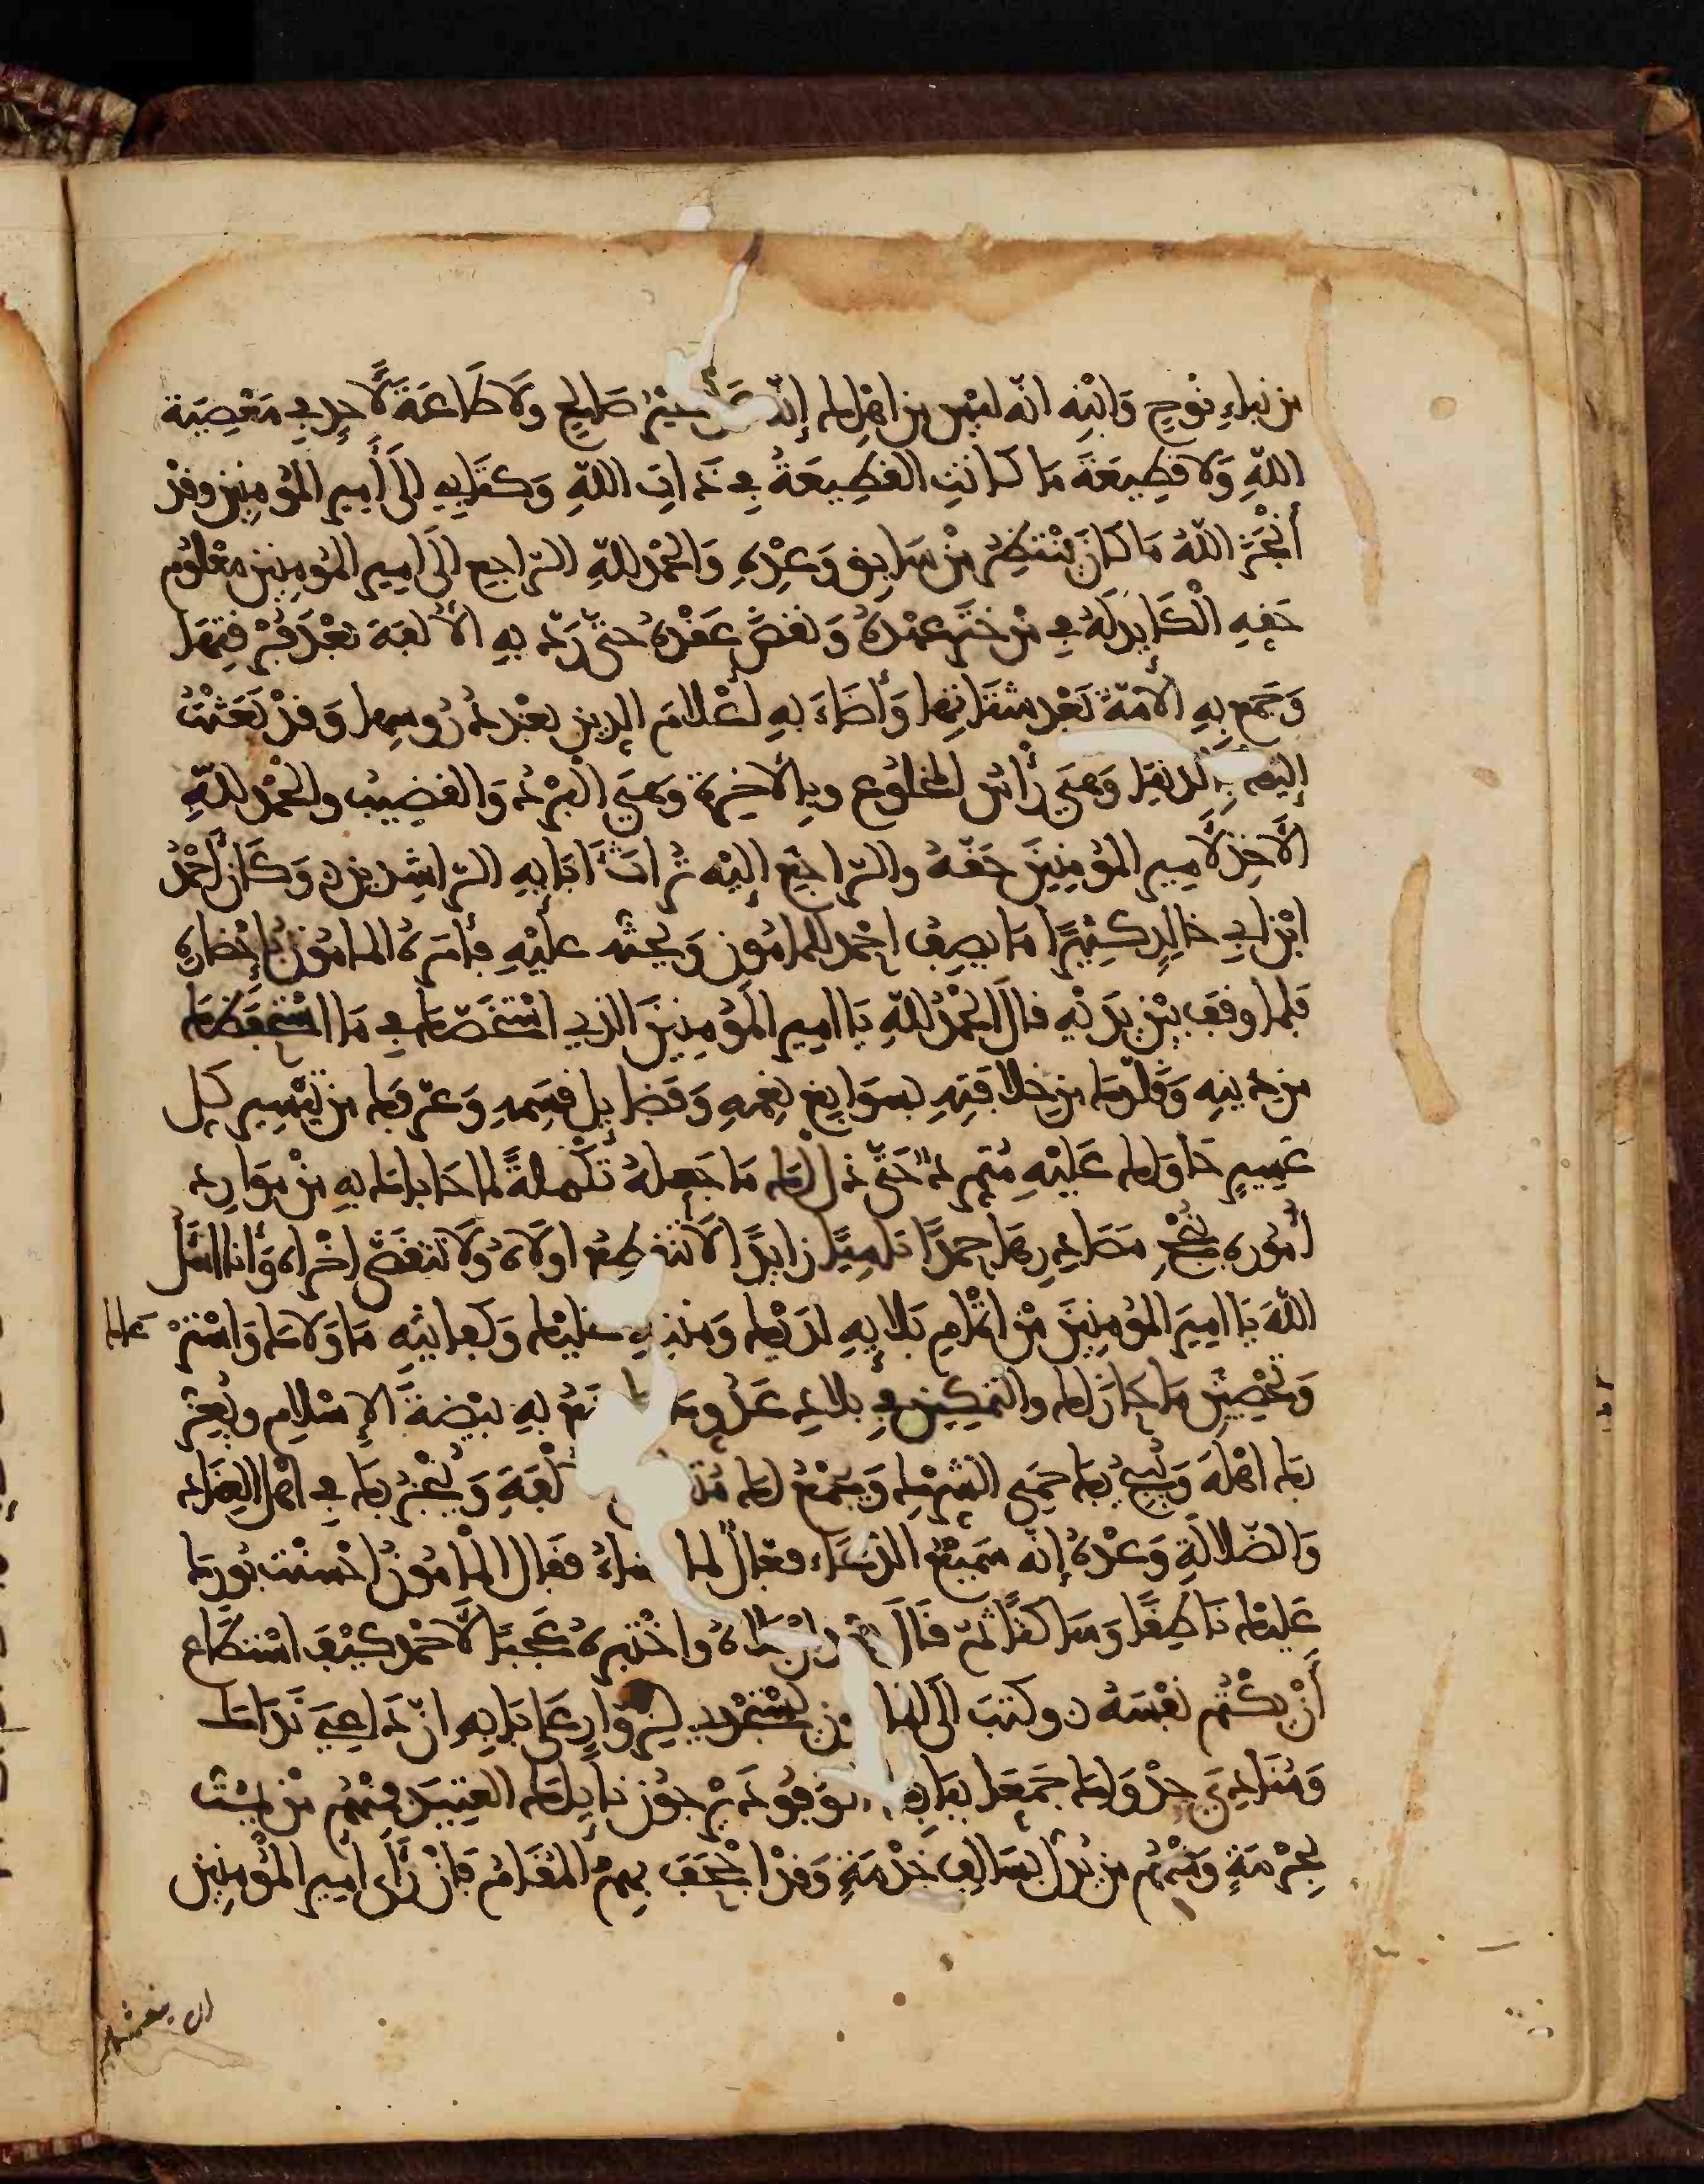 من نباء نُوحٍ وَابْنِه انّه ليْس من اهْلِك إنّه عَمَلٌ غيْر صَالِحٍ ولَا طَاعَةَ لِأَحدٍ في مَعْصِيَة
اللّهِ وَلا قطِيعَةَ مَا كَانتِ القطِيعَةُ في ذَاتِ اللّهِ وَكتَابي إلى أمير المؤمِنِين وقدْ
أَنْجَزَ اللّهُ مَا كَانَ يَنْتظِرُ مِنْ سَابِق وَعْدِهِ وَالحَمْدُ للّهِ الرّاجِع إلَى امِير المُؤمِنِين معْلُوم
حَقهِ الْكَايِد لَهُ في مَنْ خَتَر عهْدهُ وَنقضَ عَقْدهُ حتّى رَدّ به الأُلفَة بَعْدَ فُرْقتِهَا
وَجَمع بِهِ الأمّةَ بَعْد شتَاتِهَا وَأضَاءَ بهِ أعْلَامَ الدين بعْد دُرُوسِها وَقدْ بَعَثْتُ
إليْك بالدنيَا وَهيَ رَأسُ المخْلُوع وبِالآخِرَة وَهيَ الْبُرْدُ وَالقضِيبُ والحَمْد للّهِ
الآخِذ لأمِير المؤمِنِينَ حَقّهُ والرّاجِع إليْه تُرَاثَ آبَايِهِ الرّاشِدِين ۞ وَكَانَ أحْمَدُ
ابْن ابي خَالِدٍ كَثِيرًا مَا يصِفُ احْمد للمامُون وَيحثّه عليْهِ فأمَرهُ المامُون بإحْضَارِهِ
فَلما وقف بيْن يَدَيْهِ قالَ الحمْدُ للّهِ يَا امير المؤمِنِينَ الذِي اسْتخَصّك في مَا اسْتحفظك
من دِينِه وَقلّدَك من خلافَتِهِ بسَوَابِغ نِعَمِهِ وَفضَايِل قِسَمِهِ وَعَرّفك من تَيْسِير كل
عَسِيرٍ حَاوَلك عَليْهِ مُتمرد حَتّى ذَلّ لَك مَا جَعلهُ تَكْمِلةً لما حَبَاك به مِنْ مَوَارِد
أمُورِه بنُجْحِ مَصَادِرِهَا حمدًا نَامِيًا زايدًا لا يَنقطِعُ اولَاهُ ولَا يَنقضّى اخْرَاه وَأنا اسْأَل
اللّهَ يَا امِيرَ المؤمِنِينَ مِن اتْمَام بَلَايِهِ لدَيْك وَمنَنِهِ عليْك وَكفايتِه مَا وَلَاك وَاسْترْعَاك
وَتحْصِين مَا حَازَ لك والتمكِين في بلَاد عَدُوك مَا يمْنَعُ به بيْضةَ الإسْلامِ ويُعِزّ
بك اهْلهَ وَيُبيحُ بك حِمَى الشّرْك وَيجْمَعُ لك مُتبَاين الألْفَةِ وَيُنْجِزُ بك في اهْلِ العِنَادِ
وَالضّلَالَةِ وَعْدهُ إنّه سَمِيعُ الدّعَاء فعّالٌ لما يشاءُ فقَال المامُونُ احْسَنْت بُورِك
عَليْك نَاطِقًا وَسَاكتًا ثمّ قَالَ بعْد ان بَلاهُ واخْتبرهُ عَجبًا لأحْمد كيْفَ اسْتطَاع
أَنْ يكْتُم نفْسَهُ ۞ وكتبَ إلَى المامون يسْتَمْرِيه لزُوّارٍ عَلَى بَابِهِ انّ دَاعِيَ نَدَاك
وَمُنَادِيَ جدْوَاك جَمَعَا ببَابِك الوفودَ يرْجُون نايلك العتِيدَ فمِنْهُم مَن يَمُتّ
بحُرْمَةٍ وَمنْهُم من يُدِلُّ بسَالِفِ خِدْمَةٍ وَقدْ اجْحَفَ بهِمُ المُقَامُ فإنْ رَأَى أمِير المؤمِنِين
ان ينعشهم